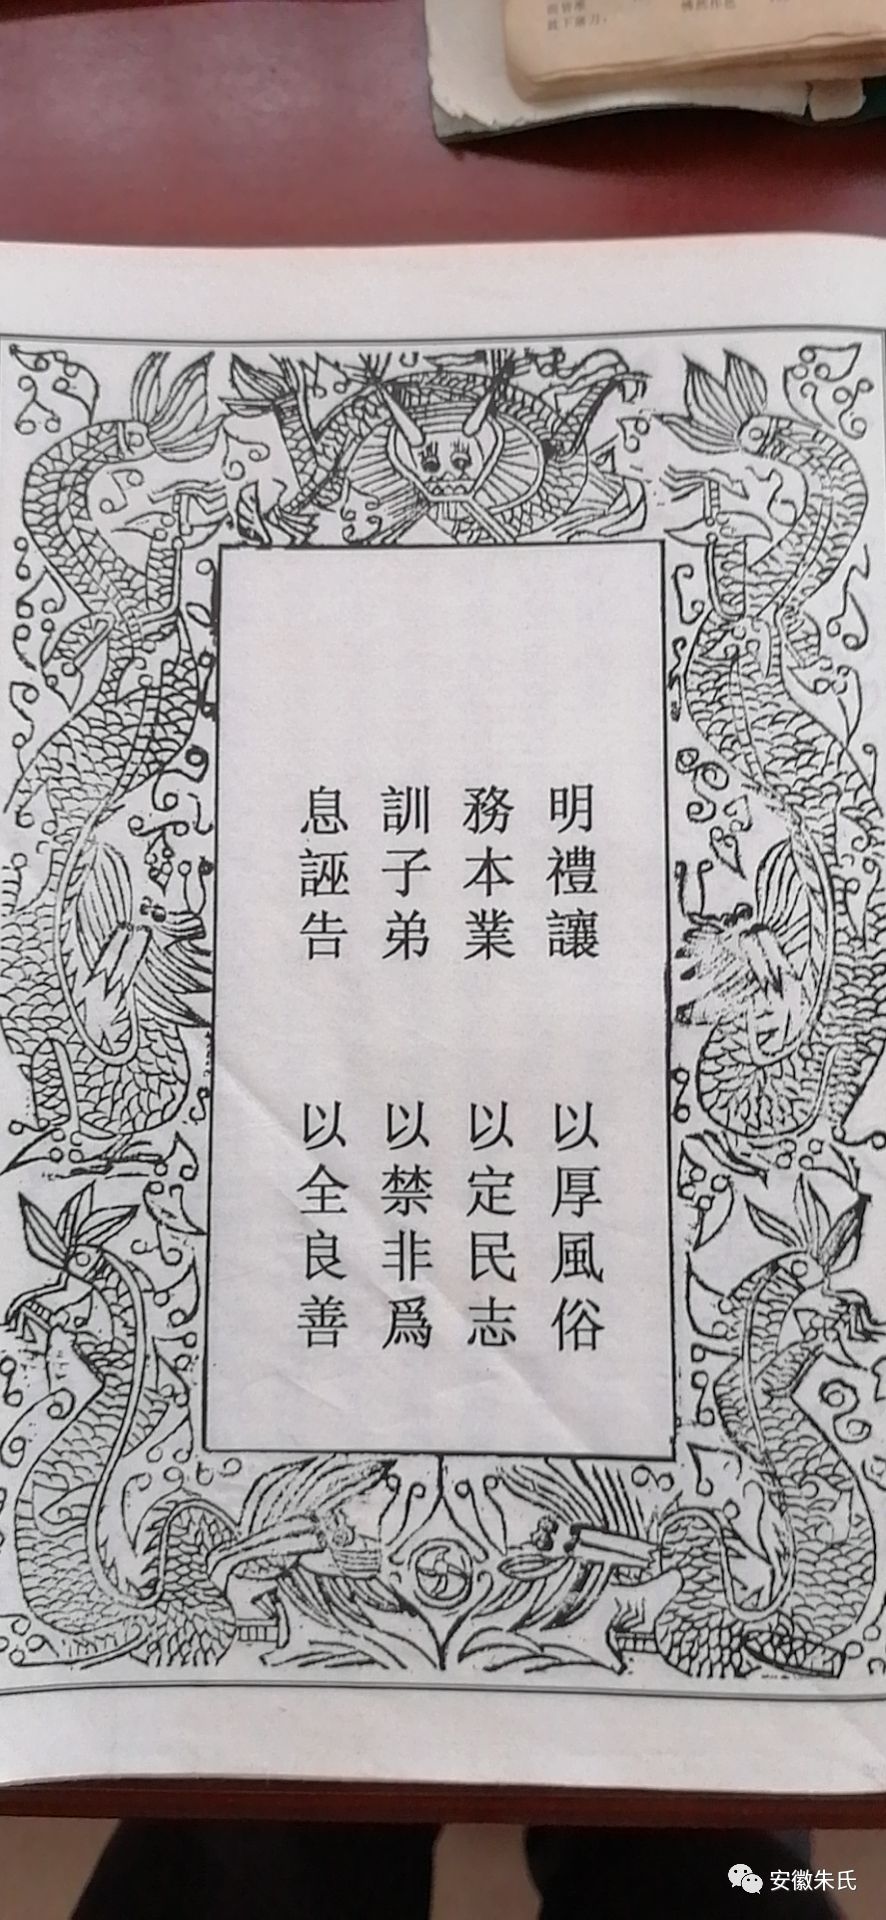 明禮讓　以厚風俗
務本業　以定民志
訓子弟　以禁非爲
息誣告　以全良善
放下屠刀，
安徽朱氏